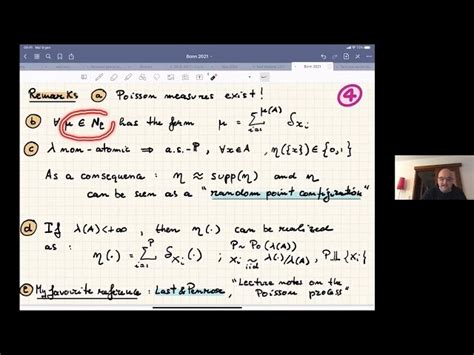 Bonn 2021
Remarks ⓐ Poisson measures exist! ④
ⓑ ∀ μ ∈ N_ℓ has the form μ = Σ_{i=1}^{μ(A)} δ_{x_i}
ⓒ λ non-atomic ⇒ a.s.-P, ∀x ∈ A, η({x}) ∈ {0,1}
As a consequence: η ≈ supp(η) and η
can be seen as a "random point configuration"
ⓓ If λ(A)<+∞, then η(·) can be realized
as: η(·) = Σ_{i=1}^{P} δ_{X_i}(·); P ~ Po(λ(A))
X_i ~ iid λ(·)/λ(A), P ⫫ {X_i}
ⓔ My favourite reference: Last & Penrose, "Lecture notes on the
Poisson process"